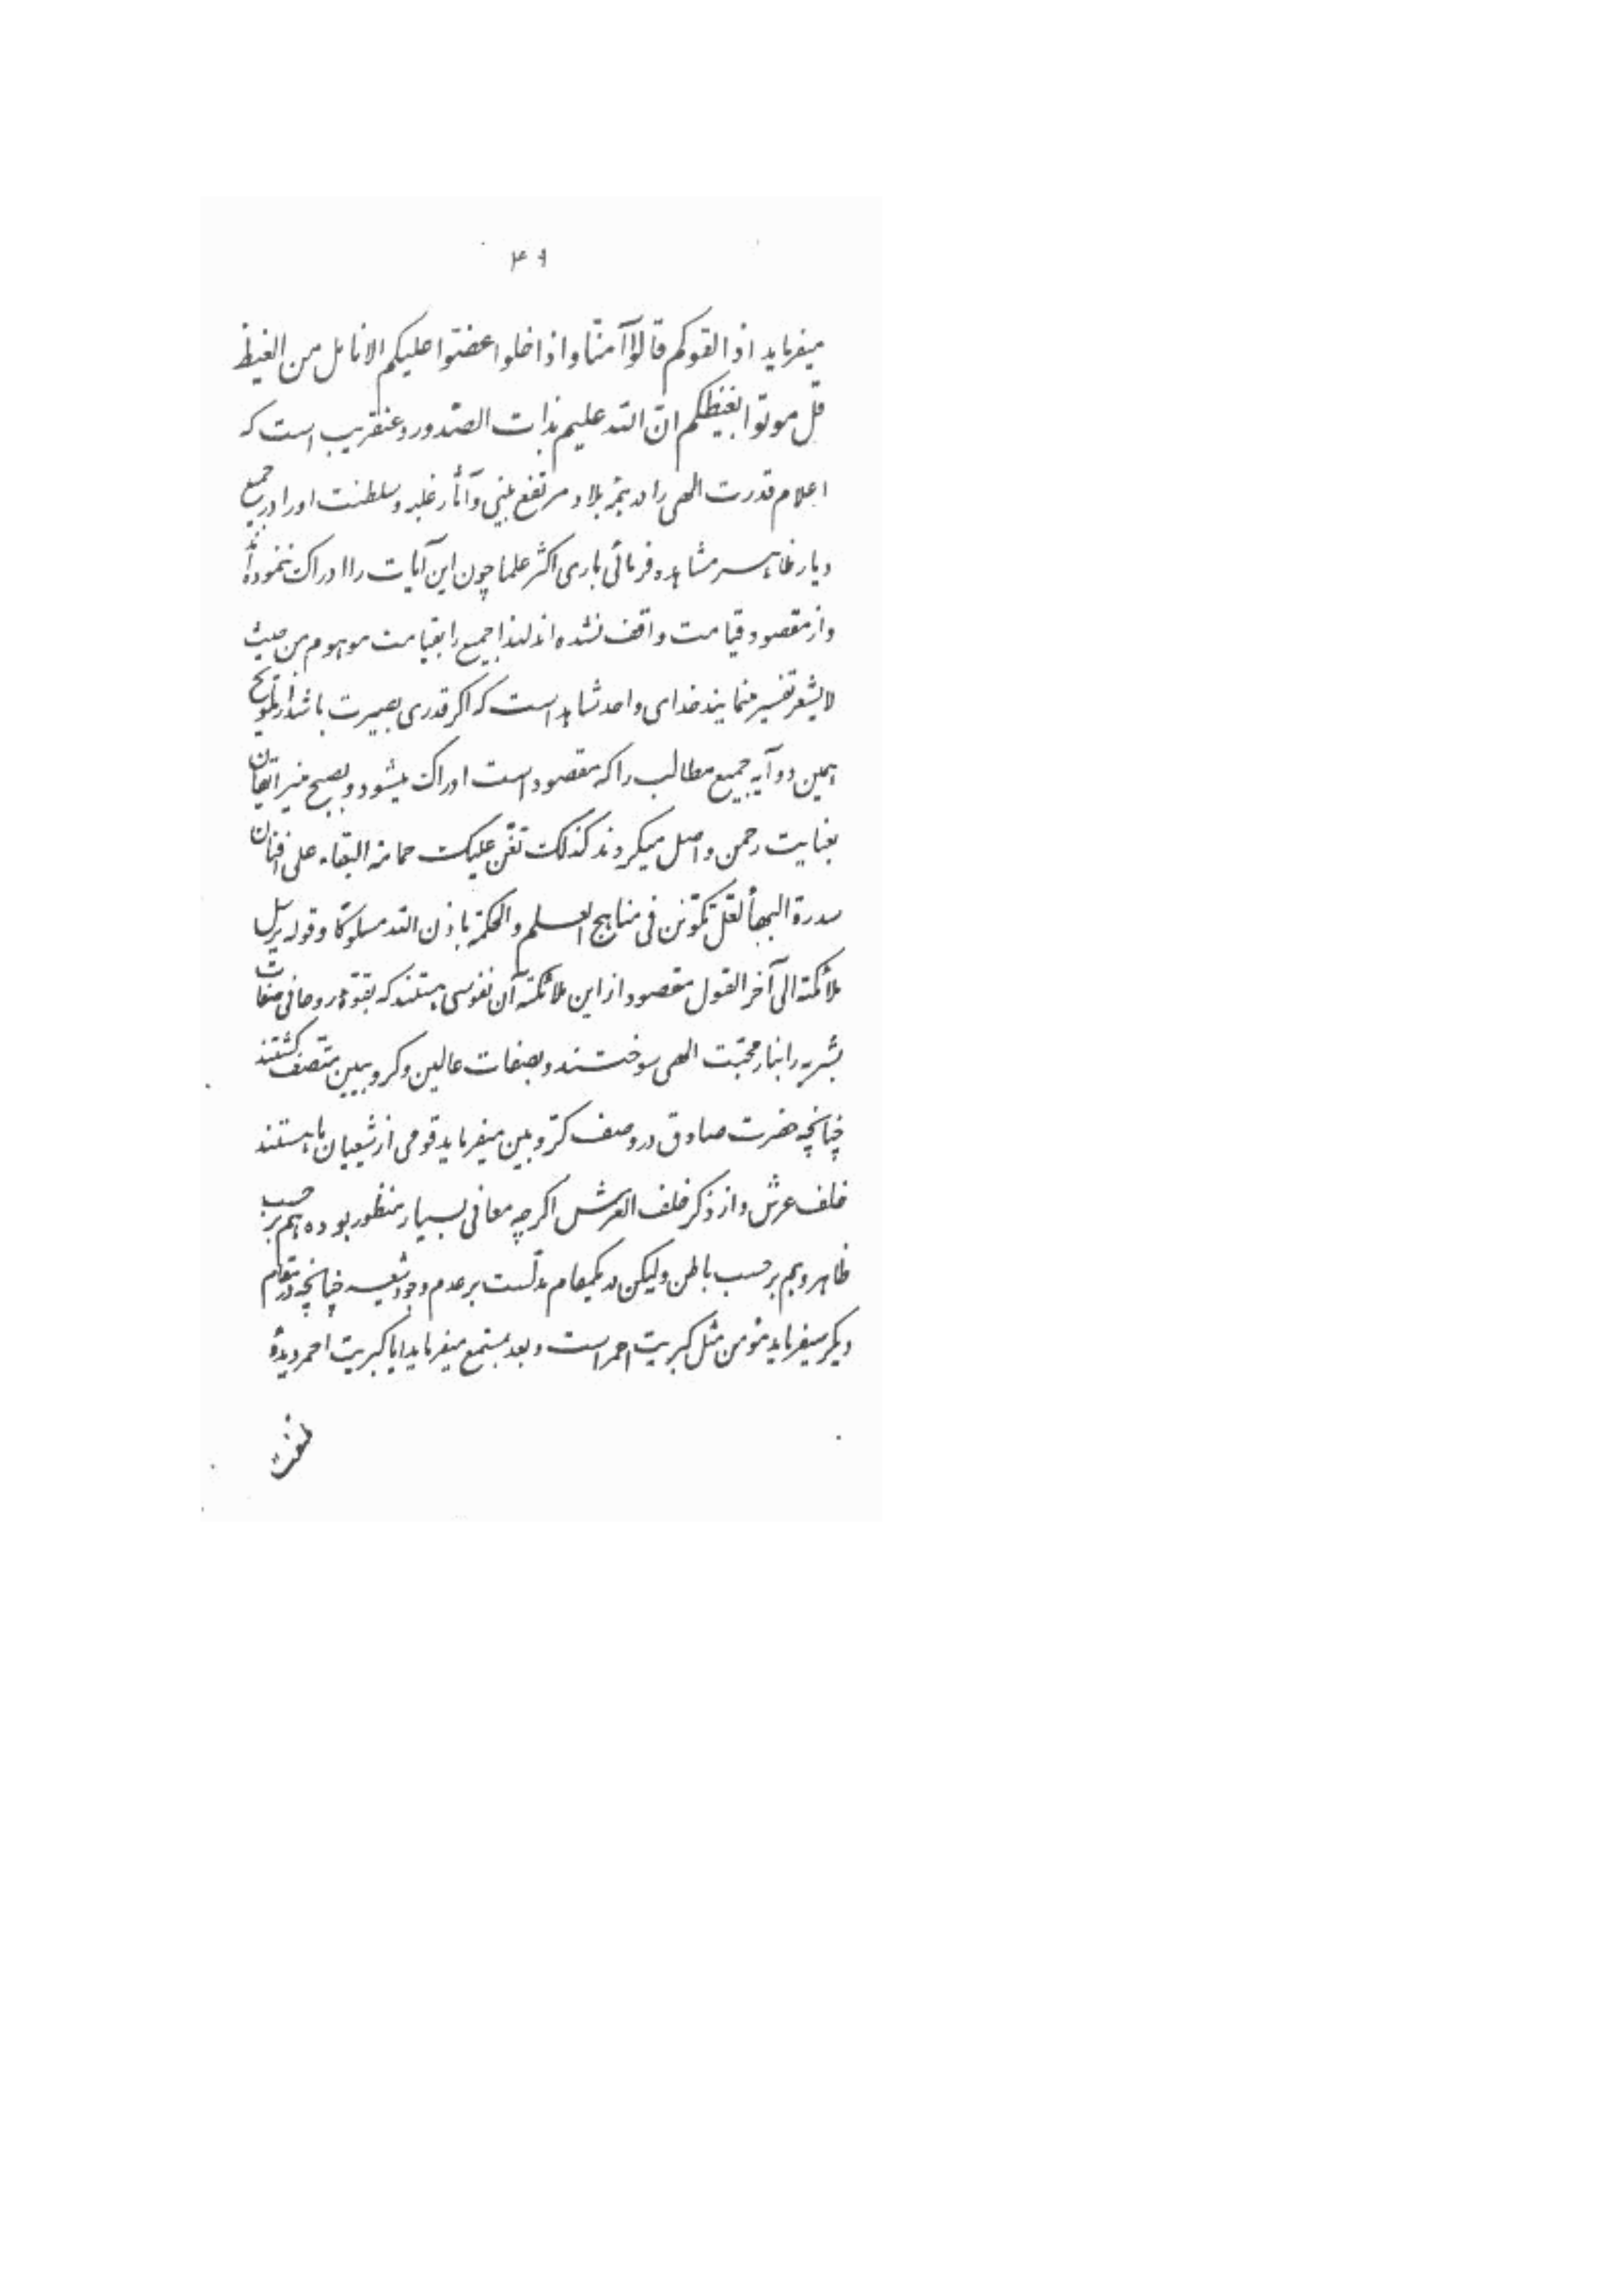 ۴۹
میفرماید اذا لقوکم قالوا آمنّا و اذا خلوا عضّوا علیکم الانامل من الغیظ
قل موتوا بغیظکم انّ الله علیم بذات الصّدور و عنقریب است که
اعلام قدرت الهی را در همهٔ بلاد مرتفع بینی و آثار غلبه و سلطنت او را در جمیع
دیار ظاهر مشاهده فرمائی باری اکثر علما چون این آیات را ادراک ننموده‌اند
و از مقصود قیامت واقف نشده‌اند لهذا جمیع را بقیامت موهوم من حیث
لا یشعر تفسیر مینمایند خدای واحد شاهد است که اگر قدری بصیرت باشد از تلویح
همین دو آیه جمیع مطالب را که مقصود است ادراک میشود و بصبح منیر ایقان
بعنایت رحمن واصل میگردند کذلک تغنّ علیک حمامة البقاء علی افنان
سدرة البهاء لعلّ تکوننّ فی مناهج العلم و الحکمة باذن الله مسلوکًا و قوله یرسل
ملائکته الی آخر القول مقصود از این ملائکته آن نفوسی هستند که بقوّهٔ روحانی صفات
بشریه را بنار محبّت الهی سوختند و بصفات عالین و کروبیین متّصف گشتند
چنانچه حضرت صادق در وصف کرّوبین میفرماید قومی از شیعیان ما هستند
خلف عرش و از ذکر خلف العرش اگرچه معانی بسیار منظور بوده هم بر حسب
ظاهر و هم بر حسب باطن ولیکن در یکمقام مدلّست بر عدم وجود شیعه چنانچه در مقام
دیگر میفرماید مؤمن مثل کبریت احمر است و بعد بمستمع میفرماید آیا کبریت احمر دیدهٔ